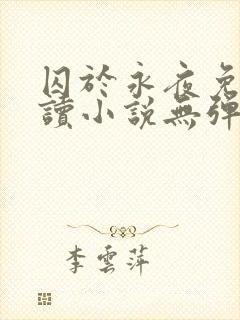 囚於永夜免
讀小說無彈
李雲萍